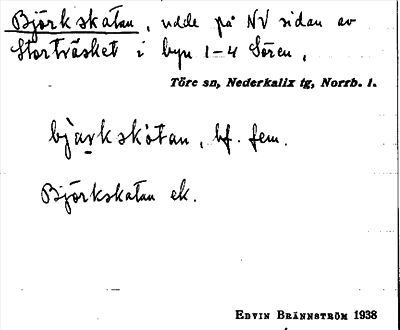 Björkskatan, udde på NV sidan av
Storträsket i byn 1-4 Sören,
Töre sn, Nederkalix tg, Norrb. l.
bjarkskòtan, bf. fem.
Björkskatan ek.
EDVIN BRÄNNSTRÖM 1938